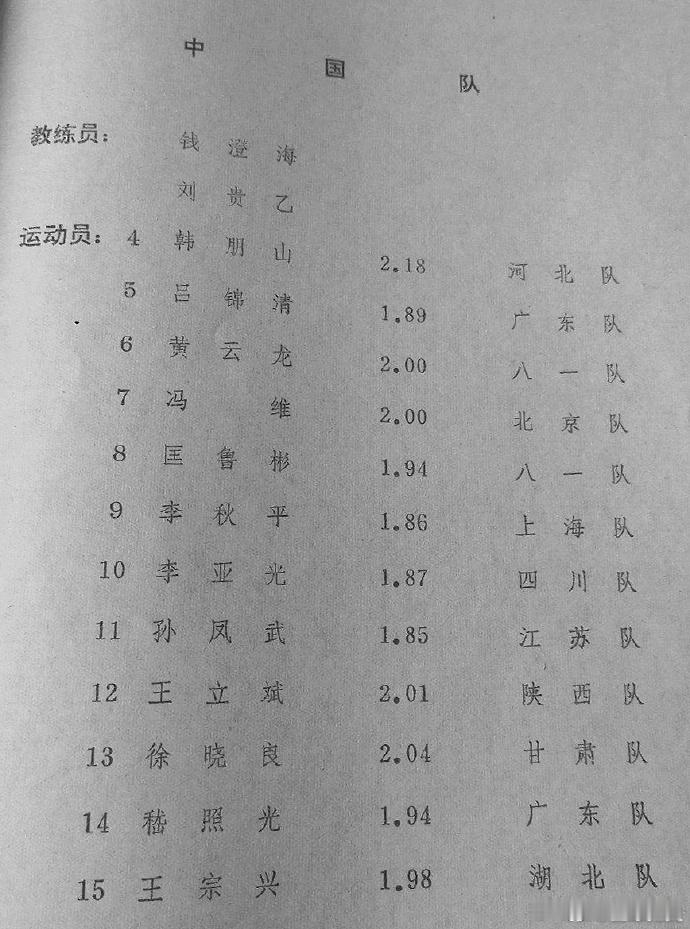 中国队
教练员： 钱澄海
刘贵乙
运动员： 4 韩朋山 2.18 河北队
5 吕锦清 1.89 广东队
6 黄云龙 2.00 八一队
7 冯维 2.00 北京队
8 匡鲁彬 1.94 八一队
9 李秋平 1.86 上海队
10 李亚光 1.87 四川队
11 孙凤武 1.85 江苏队
12 王立斌 2.01 陕西队
13 徐晓良 2.04 甘肃队
14 嵇照光 1.94 广东队
15 王宗兴 1.98 湖北队